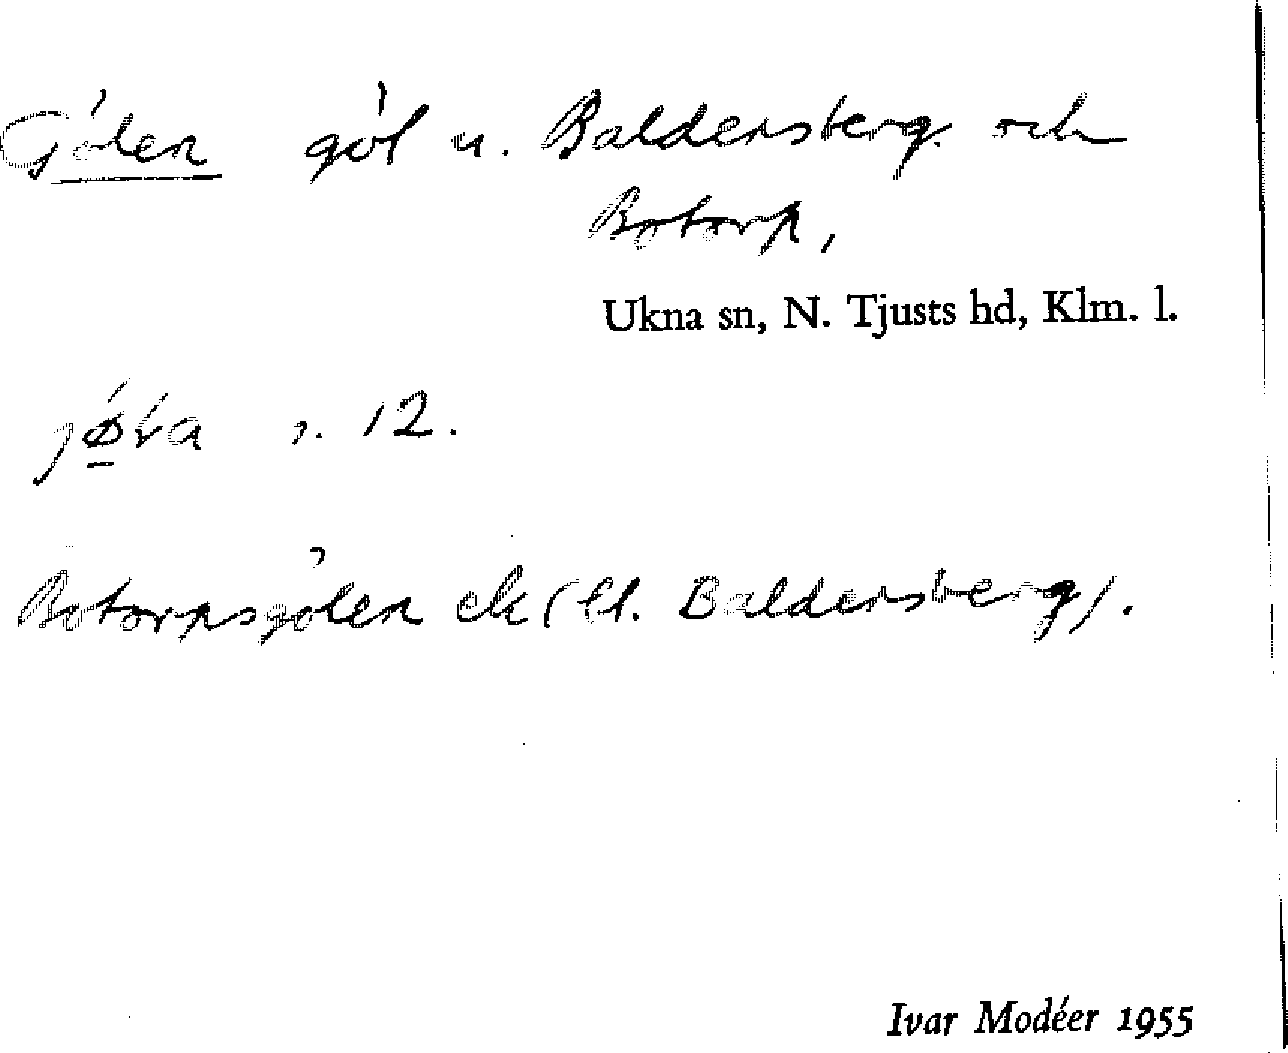 Gölen göl u. Baldersberg och
Botorp,
Ukna sn, N. Tjusts hd, Klm. l.
12.
Botorpsgölen ek (Baldersberg).
Ivar Modéer 1955